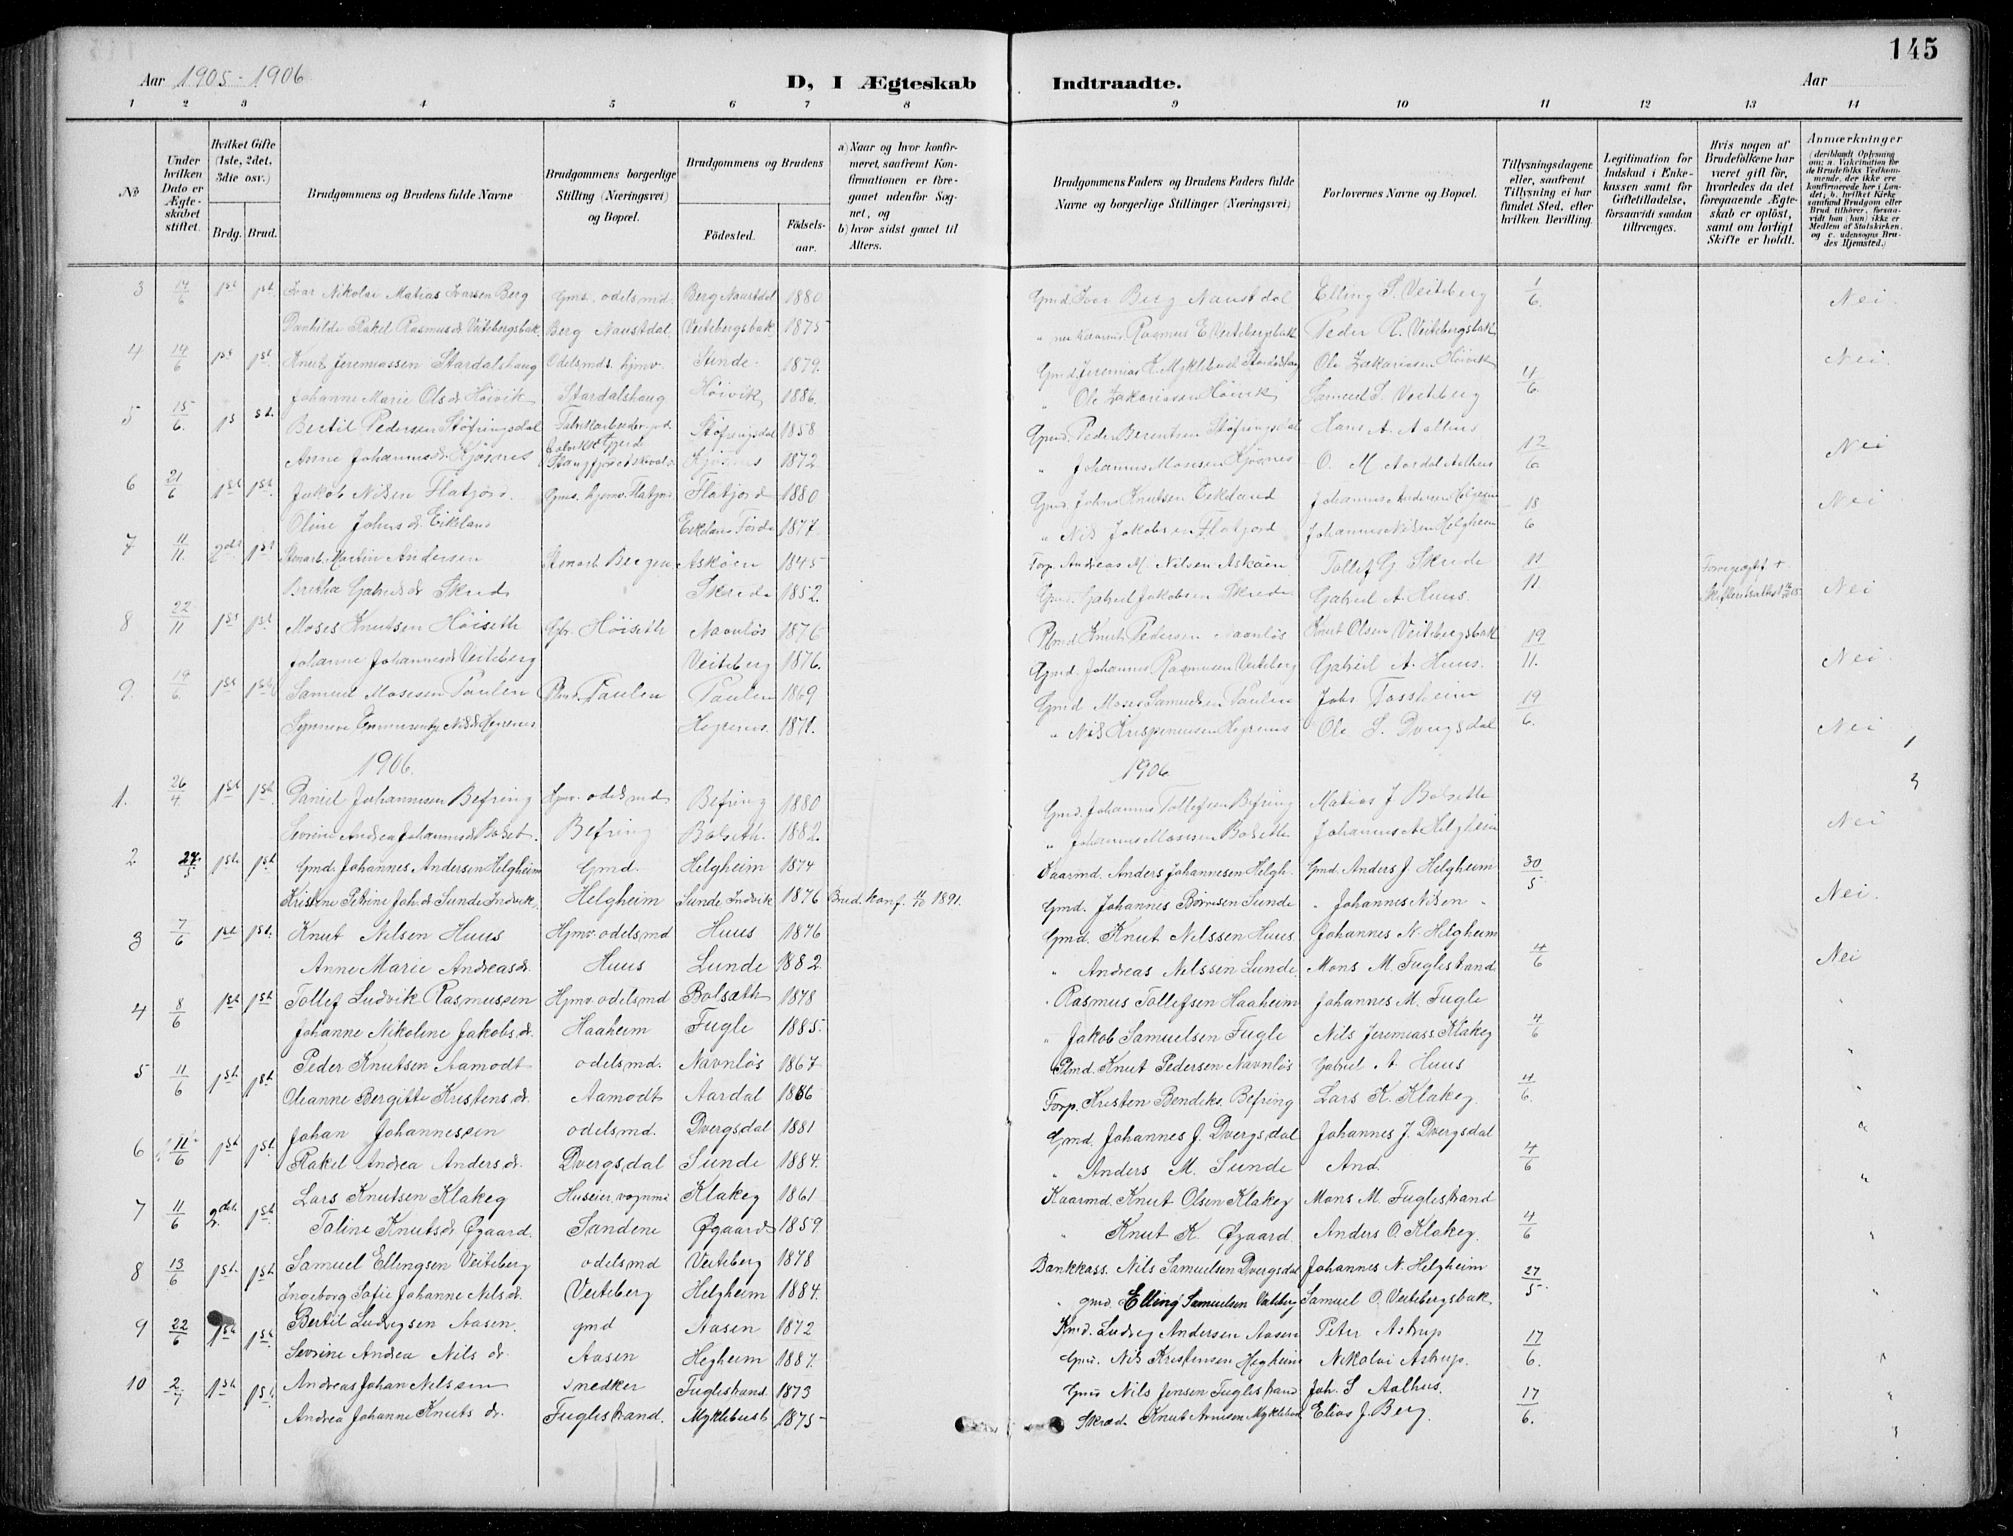 145
Aar 1905 - 1906
D, I Ægteskab Indtraadte.
Aar
1 2 3 4 5 6 7 8 9 10 11 12 13 14
No
Under hvilken Dato er Ægteskabet stiftet.
Hvilket Gifte (1ste, 2det, 3die osv.)
Brdg. Brud.
Brudgommens og Brudens fulde Navne
Brudgommens borgerlige Stilling (Næringsvei) og Bopæl.
Brudgommens og Brudens
Födested. Födselsaar.
a) Naar og hvor konfirmeret, saafremt Konfirmationen er foregaaet udenfor Sognet, og
b) hvor sidst gaaet til Alters.
Brudgommens Faders og Brudens Faders fulde Navne og borgerlige Stillinger (Næringsvei)
Forlovernes Navne og Bopæl.
Tillysningsdagene eller, saafremt Tillysning ei har fundet Sted, efter hvilken Bevilling.
Legitimation for Indskud i Enkekassen samt for Giftetilladelse, forsaavidt saadan tiltrænges.
Hvis nogen af Brudefolkene har været gift för, hvorledes da det foregaaende Ægteskab er oplöst, samt om lovligt Skifte er holdt.
Anmærkninger
(deriblandt Oplysning om: a. Vakcination for de Brudefolks Vedkommende, der ikke ere konfirmerede her i Landet; b. hvilket Kirkesamfund Brudgom eller Brud tilhörer, forsaavidt han (hun) ikke er Medlem af Statskirken, og c. udensogns Brudes Hjemsted.)
3 14/6 1st 1st Ivar Nikolai Matias Ivarsen Berg Gms. odelsmd. Berg Naustdal 1880 Gmd. Iver Berg Naustdal Elling S. Veiteberg 1/6. Nei.
Rakel Rasmusdr Veitebergsbak. Berg Naustdal. Veitebergsbak. 1875 Rasmus E. Veitebergsbak Peder R. Veitebergsbak
4 14/6 1st 1st Knut Jeremiassen Stardalshaug Odelsmds. hjmv. Sunde. 1879. Gmd. Jeremias K. Myklebust Stardalshaug Ole Zakariassen Höivik 4/6 Nei
Johanne Marie Olsdr Höivik Stardalshaug Höivik 1886. " Ole Zakariassen Höivik Samuel S. Veiteberg
5 15/6. 1s st. Bertil Pedersen Stöfringsdal Fabrikarbeider Stöfringsdal 1858 Gmd. Peder Berentsen Stöfringsdal Hans A. Aalhus 12/6 Nei
Anne Johannesdr Kjösnes Kjösnes 1872 " Johannes Mosesen Kjösnes O. M. Aardal Aalhus
6 21/6 1st 1st Jakob Nilsen Flatjord. Gms. hjmv. Flatjord Flatjord 1880 Gmd. Johns Knutsen Eikeland Johannes Andersen Helgheim 18/6 Nei
Oline Johnsdr. Eikeland Eikeland Förde 1877. " Nils Jakobsen Flatjord Johannes Nilsen Helgheim
7 11/11. 2det 1st Martin Andersen Bergen Asköen 1845 Andreas M. Nilsen Asköen Tollef G. Skrede 11/11 Nei
Brithe Gabrielsdr Skrede Skrede 1852. Gmd. Gabriel Jakobsen Skrede Gabriel A. Huus.
8 22/11 1st 1st Moses Knutsen Höiseth Gbr. Höiseth Navnlös 1876 Plmd. Knut Pedersen Navnlös Knut Olsen Veitebergsbak 19/11. Nei
Johanne Johannesdr Veiteberg Veiteberg 1876. Gmd. Johannes Rasmusen Veiteberg Gabriel A. Huus.
9. 19/6. 1st 1st Samuel Mosesen Paulen Plmd. Paulen Paulen 1869 Gmd Moses Samuelsen Paulen Johs Fossheim 19/6. Nei
Synneve Nilsdr Hegrenes Hegrenes. 1871. " Nils Krispinussen Hegrenes Ole S. Dvergsdal
1906. 1906.
1. 26/4 1st 1st. Daniel Johannesen Befring Hjmv. odelsmd Befring 1880 Gmd. Johannes Tollefsen Befring Matias J Bolseth Nei
Sevrine Andrea Johannesdr Bolset. Befring Bolseth. 1882. " Johannes Mosesen Bolseth Johannes A Helgheim
2 27/5 1st. 1st. Gmd. Johannes Andersen Helgheim Gmd. Helgheim 1874 Kaarmd. Anders Johannesen Helgh. Gmd. Anders J. Helgheim 30/5 Nei.
Kristine Petrine Joh.dr Sunde Indvik. Helgheim Sunde Indvik 1876 Brud. konf. 1891. Gmd. Johannes Börresen Sunde " Johannes Nilsen "
3 7/6 1st 1st. Knut Nilsen Huus Hjmv. odelsmd Huus 1876 Gmd. Knut Nilssen Huus. Johannes N. Helgheim 4/6 Nei
Anne Marie Andreasdr. Huus Lunde 1882 " Andreas Nilssen Lunde Mons M. Fuglestrand
4 8/6 1st 1st. Tollef Ludvik Rasmussen Hjmv. odelsmd Bolsæth 1878 " Rasmus Tollefsen Haaheim Johannes M. Fugle 4/6 "
Johanne Nikoline Jakobs.dr. Haaheim Fugle 1885. " Jakob Samuelsen Fugle Nils Jeremiass. Klakeg
5 11/6 1st. 1st. Peder Knutsen Aamodt odelsmd. Navnlös 1867 Plmd. Knut Pedersen Navnlös Gabriel A. Huus 4/6. "
Olianne Bergitte Kristens.dr. Aamodt Aardal 1886 Forp. Kristen Bendiks. Befring Lars K. Klakeg.
6 11/6 1st 1st. Johan Johannessen odelsmd. Dvergsdal 1881 Gmd. Johannes J. Dvergsdal Johannes J. Dvergsdal 4/6 "
Rakel Andrea Anders.dr. Dvergsdal Sunde 1884. " Anders M. Sunde And.
7 11/6 2det. 1st. Lars Knutsen Klakeg Huseier, vognm. Klakeg 1861 Kaarmd. Knut Olsen Klakeg Mons M. Fuglestrand 4/6 "
Taline Knutsdr Øgaard. Sandene Øgaard 1859. " Knut K. Øgaard. Anders O. Klakeg.
8 13/6 1st. 1st. Samuel Ellingsen Veiteberg odelsmd Veiteberg 1878 Bankkass. Nils Samuelsen Dvergsdal Johannes N. Helgheim 27/5 "
Ingeborg Sofie Johanne Nils.dr. Veiteberg Helgheim 1884. " gmd. Elling Samuelsen Veiteberg Samuel O. Veitebergsbak.
9 22/6 1st 1st. Bertil Ludvigsen Aasen. gmd Aasen 1872 Kmd. Ludvig Andersen Aasen Peter Astrup 17/6. "
Sevrine Andrea Nils dr. Aasen Hegheim 1887. Gmd. Nils Kristensen Hegheim Nikolai Astrup.
10 2/7 1st. 1st. Andreas Johan Nilssen Snedker Fuglestrand 1873 Gmd Nils Jensen Fuglestrand Joh. S Aalhus. 17/6. "
Andrea Johanne Knuts dr. Fuglestrand. Myklebust 1875 Skræd. Knut Arnesen Myklebust Elias J. Berg.